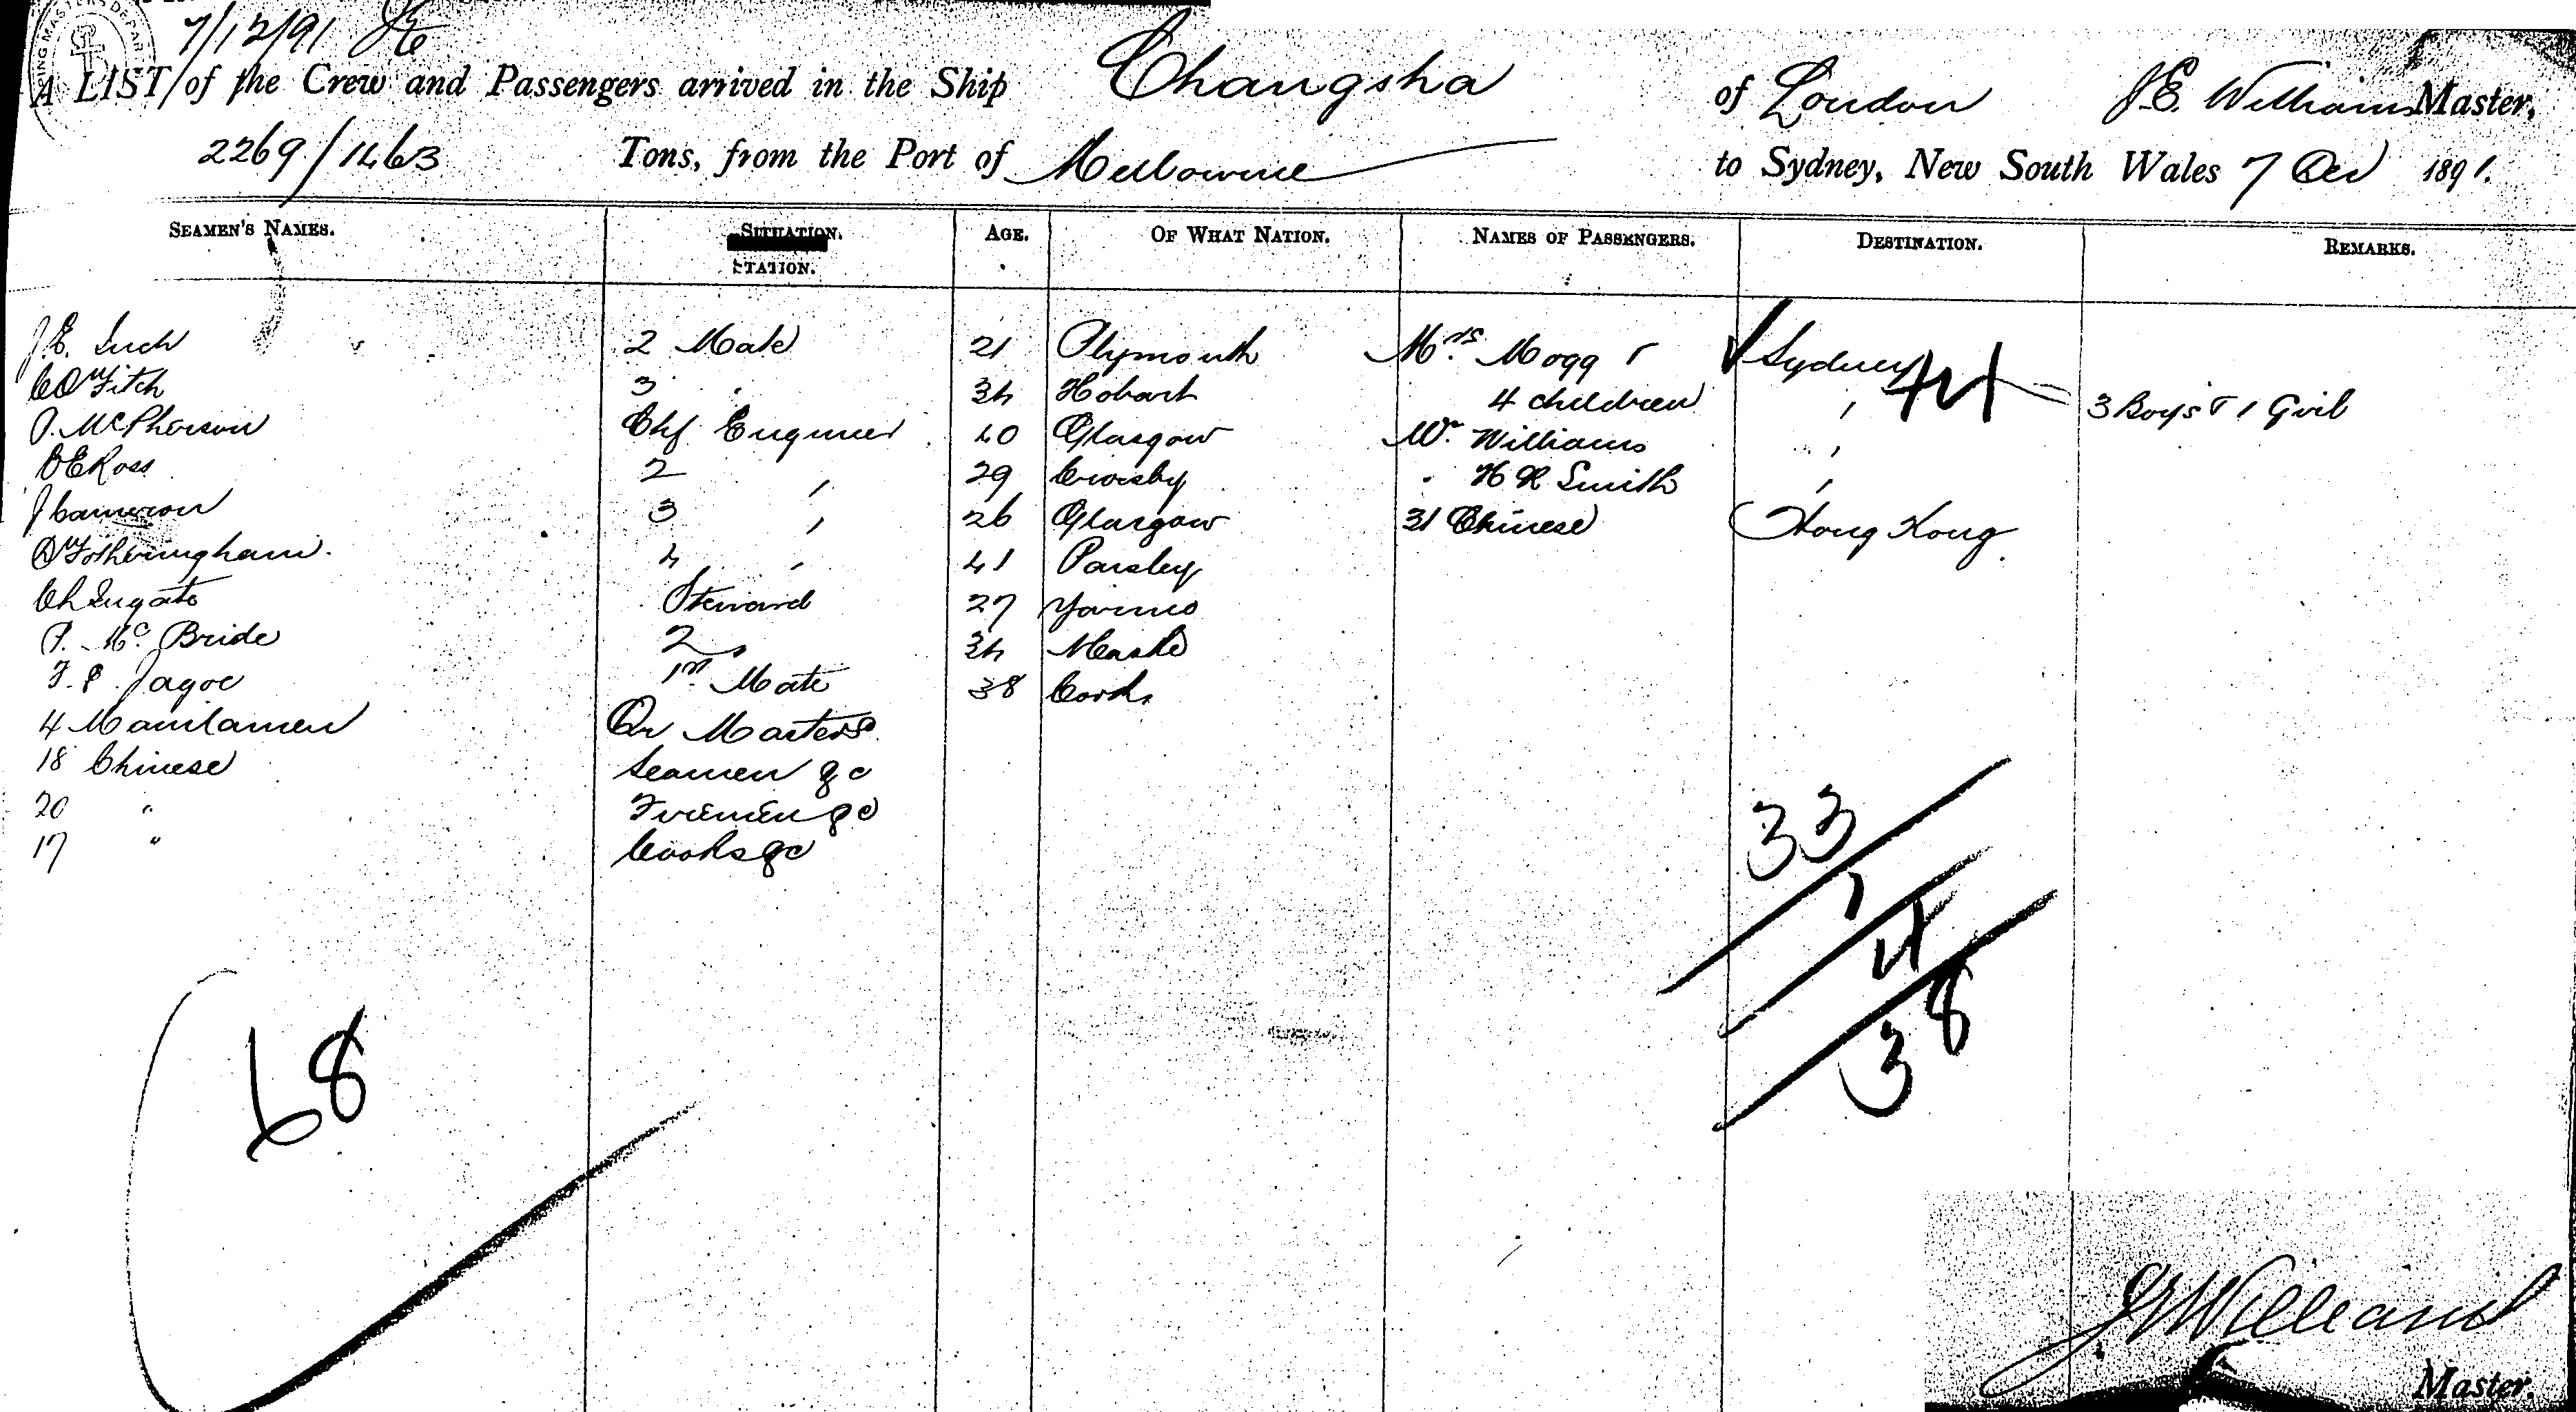 7/12/91
A LIST of the Crew and Passengers arrived in the Ship Changsha of London J.E. Williams Master,
2269/1463 Tons, from the Port of Melbourne to Sydney, New South Wales 7 Dec 1891.
SEAMEN'S NAMES. SITUATION. AGE. OF WHAT NATION. NAMES OF PASSENGERS. DESTINATION. REMARKS.
STATION.
J.E. 2 Mate 21 Plymouth Mrs. Mogg & Sydney 4
Fitch 3 " 34 Hobart 4 children " 3 Boys & 1 Girl
P. McPherson Chf Engineer 40 Glasgow Mr. Williams "
Ross 2 " 29 Crosby " H R Smith "
J Cameron 3 " 26 Glasgow 31 Chinese Hong Kong
D Fotheringham. 4 " 41 Paisley
Steward 27
P. Mc. Bride 2 " 34
F. P. Jagoe 1st Mate 38 Cork
4 Manilamen Qr Masters
18 Chinese Seamen &c
20 " Firemen &c
17 " Cooks &c
33
1
4
38
68
J E Williams
Master.